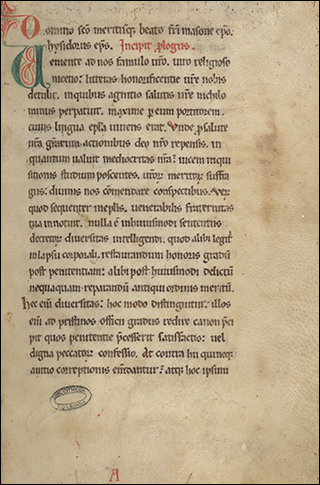 Domino sc̄o meritisq; beato fr̄i masone ep̄o.
hysidorus ep̄s. Incipit ꝓlogus.
Veniente ad nos famulo ur̄o. uiro religioso
nicetio: litteras honorificentie ur̄e nobis
detulit. inquibus agnitio salutis ur̄e nichilo
minus perpatuit. maxime ꝑ eum portitorem.
cuius lingua epl̄a uiuens erat. Vnde ꝓ salute
ur̄a gratiarum actionibus deo nr̄o repensis. in
quantum ualuit mediocritas nr̄a: uicem inqui
sitionis studium poscentes. meritor̄ suffra
gus: diuinis nos cōmendare conspectibus.
quod sequenter inepl̄is. uenerabilis fraternitas
tua innotuit. nulla ē inhuiusmodi sententiis
decretor̄ diuersitas intelligendi. quod alibi legit̄
inlapsu corporali. restaurandum honoris gradū
post penitentiam: alibi post huiusmodi delictū
nequaquam reparandū antiqui ordinis meritū.
hec eni diuersitas: hoc modo distinguitur. illos
eni ad pristinos officii gradus redire canon p̄ci
pit quos penitentie p̄cesserit satisfactio: uel
digna peccator̄ confessio. At contra hi qui neq;
autio correptionis emēdantur: atq; hoc ipsum
A